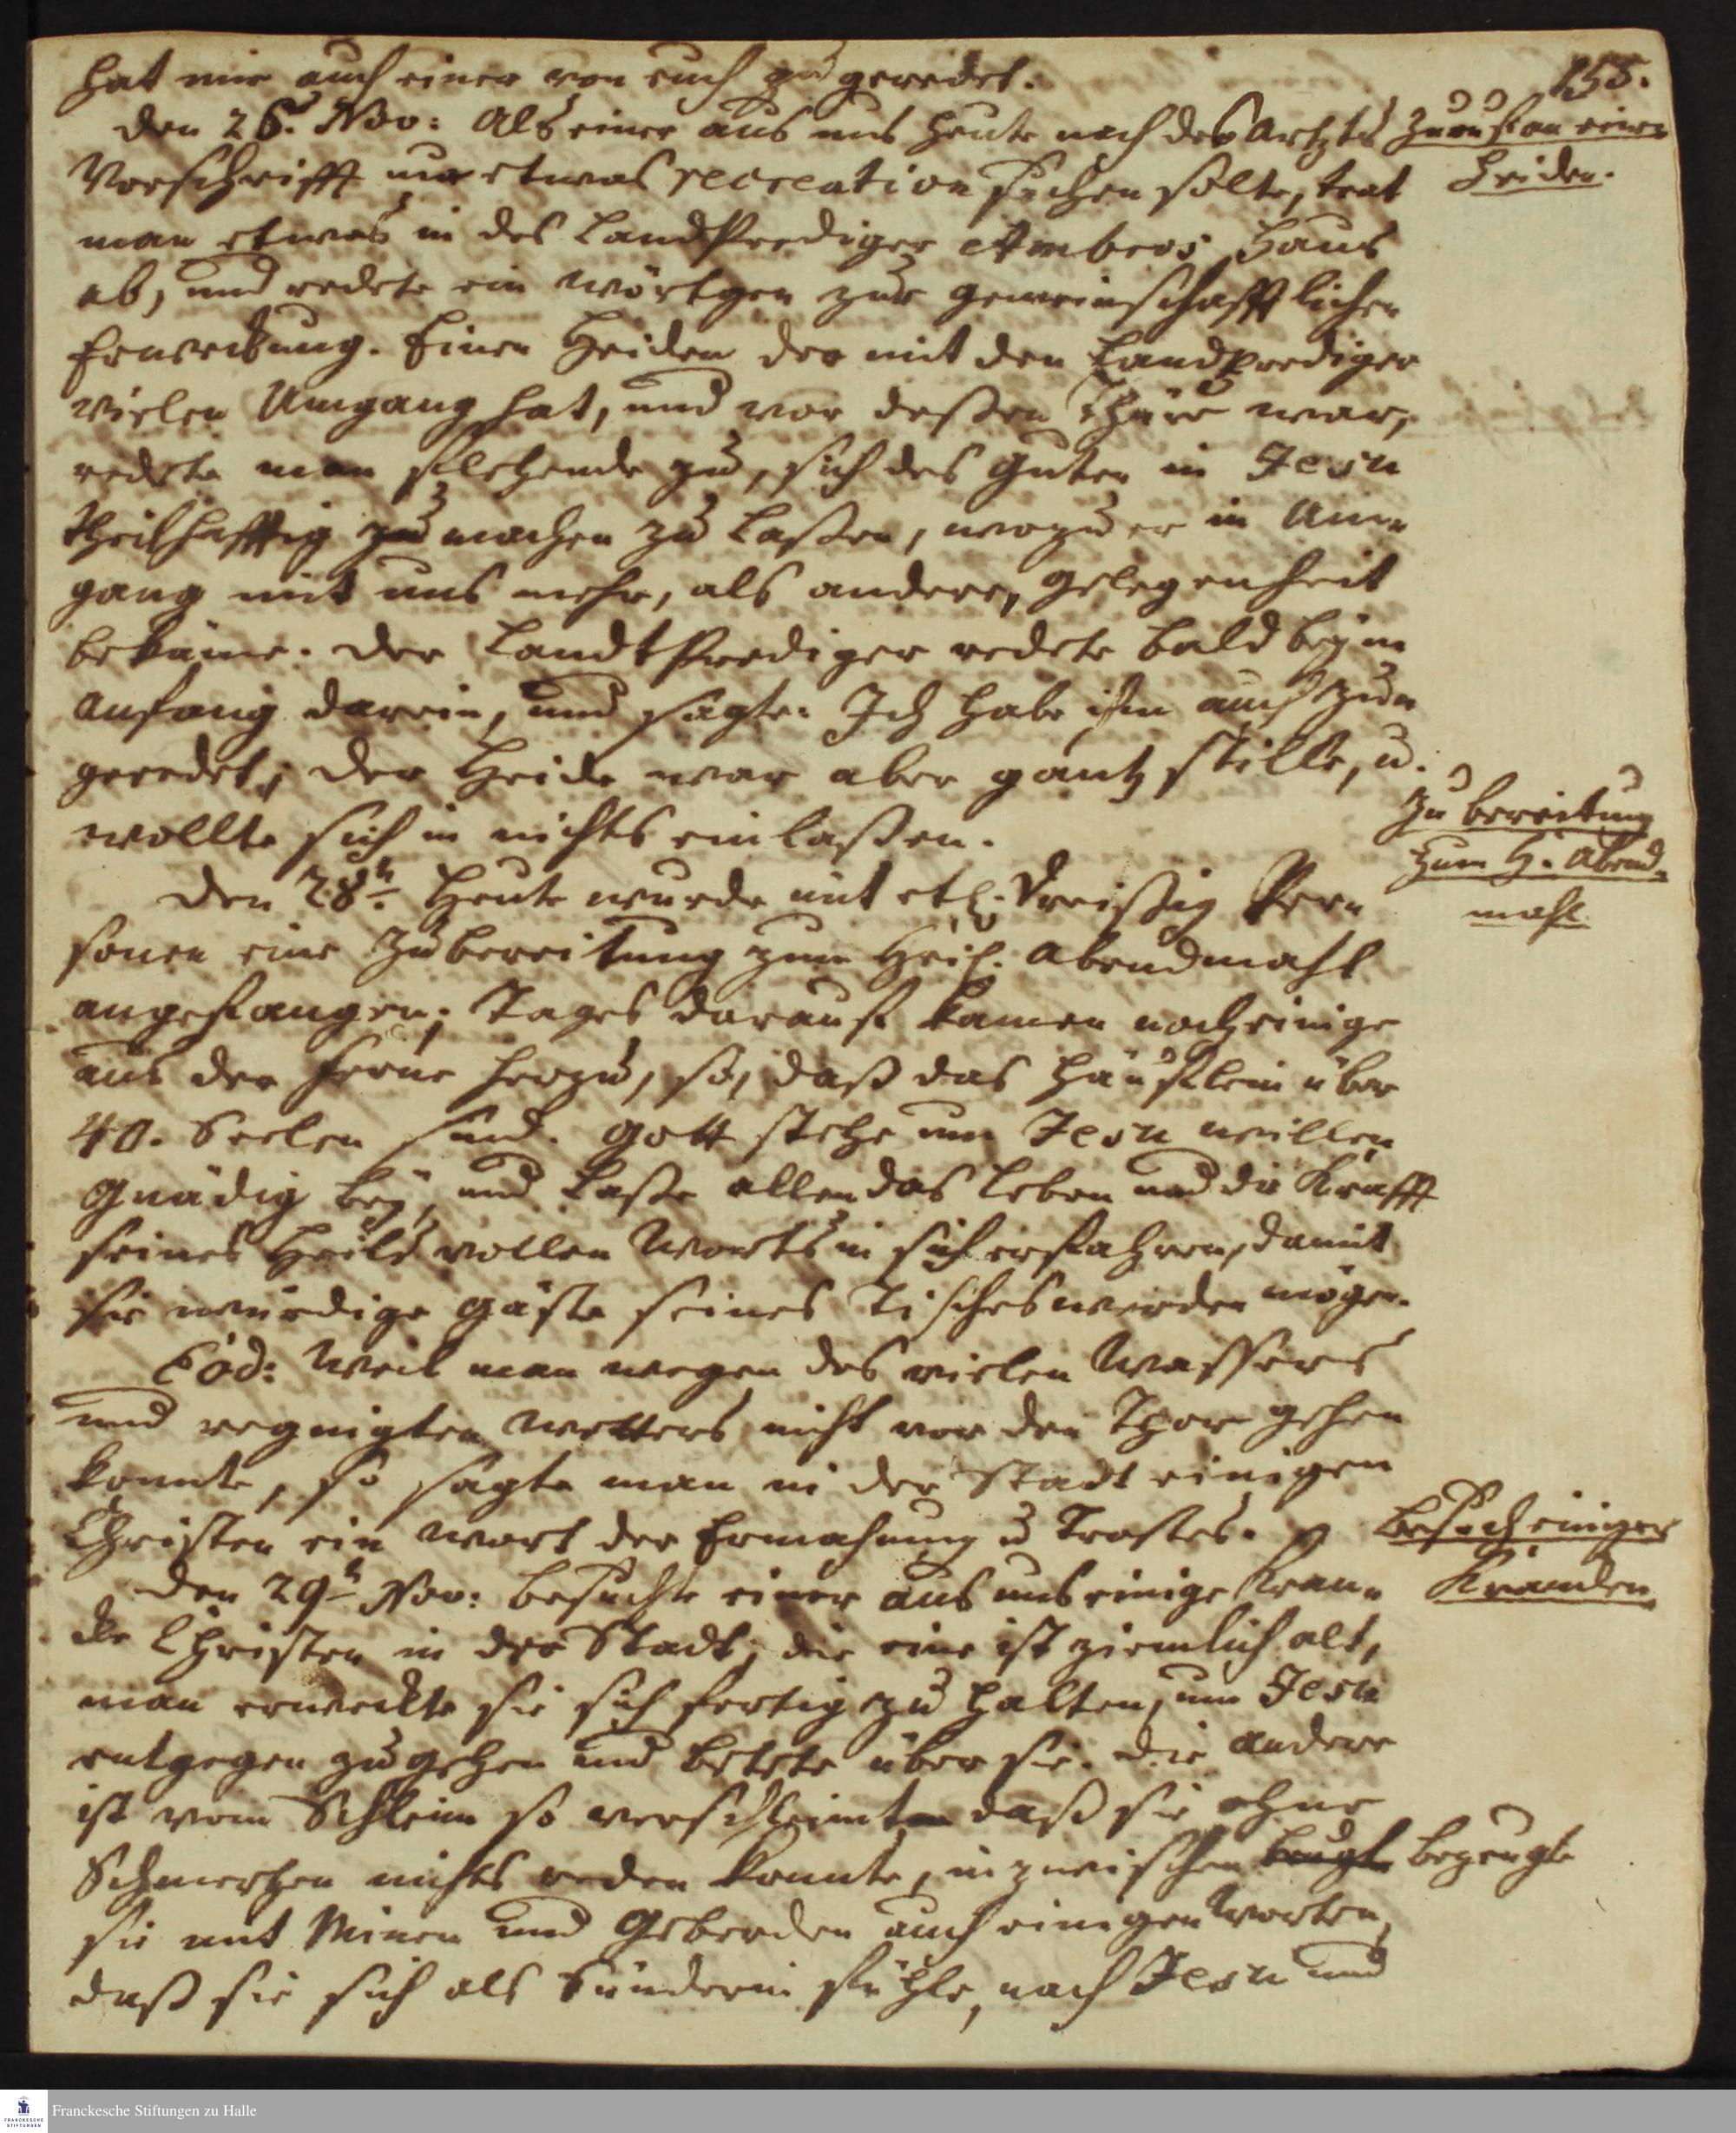 155.
hat mir auch einer von euch zu geredet.
Den 26. Nov: Als einer aus uns heute nach des Artztes
Zuruf an einen
Heiden.
Vorschrifft nur etwas recreation suchen solte, trat
man etwas in des LandPrediger Ambros Haus
ab, und redete ein wörtgen zur gemeinschafftlichen
Erweckung. Einen Heiden der mit den Landprediger
vielen Umgang hat, und vor deßen Thüre war,
redete man flehende zu, sich des Guten in Jesu
theilhafftig zu machen zu laßen, wozu er in Um-
gang mit uns mehr, als andere, Gelegenheit
bekäme. Der LandtPrediger redete bald beym
Anfang darein, und sagte: Ich habe ihm auch zu-
geredet; Der Heide war aber gantz stille, u.
wollte sich in nichts einlaßen.
Zubereitung
zum H. Abend-
mahl
Den 28t. Heute wurde mit etl. Dreißig Per-
sonen eine Zubereitung zum Heil. Abendmahl
angefangen; Tages darauf kamen noch einige
aus der Ferne herzu, so, daß das Häuflein über
40. Seelen sind. Gott stehe um Jesu willen
Gnädig bey, und laße allen das Leben und die Krafft
seines Heils vollen Worts in sich erfahren, damit
sie würdige Gäste seines Tisches werden mögen.
Eod: Weil man wegen des vielen Wassers
und regnigten Wetters nicht vor den Thor gehen
konnte, so sagte man in der Stadt einigen
Christen ein Wort der Ermahnung u Trostes.
Besuch einiger
Krancken
Den 29t Nov: besuchte einer aus uns einige Kran-
cke Christen in der Stadt, die eine ist ziemlich alt,
man erweckte sie sich fertig zu halten, um Jesu
entgegen zu gehen und betete über sie. Die andere
ist vom Schleim so verschleimt daß sie ohne
Schmertzen nichts reden konnte, inzwischen bezeugte
sie mit Minen und Geberden auch einigen Worten,
daß sie sich als Sünderin fühle, nach Jesu und
Franckesche Stiftungen zu Halle